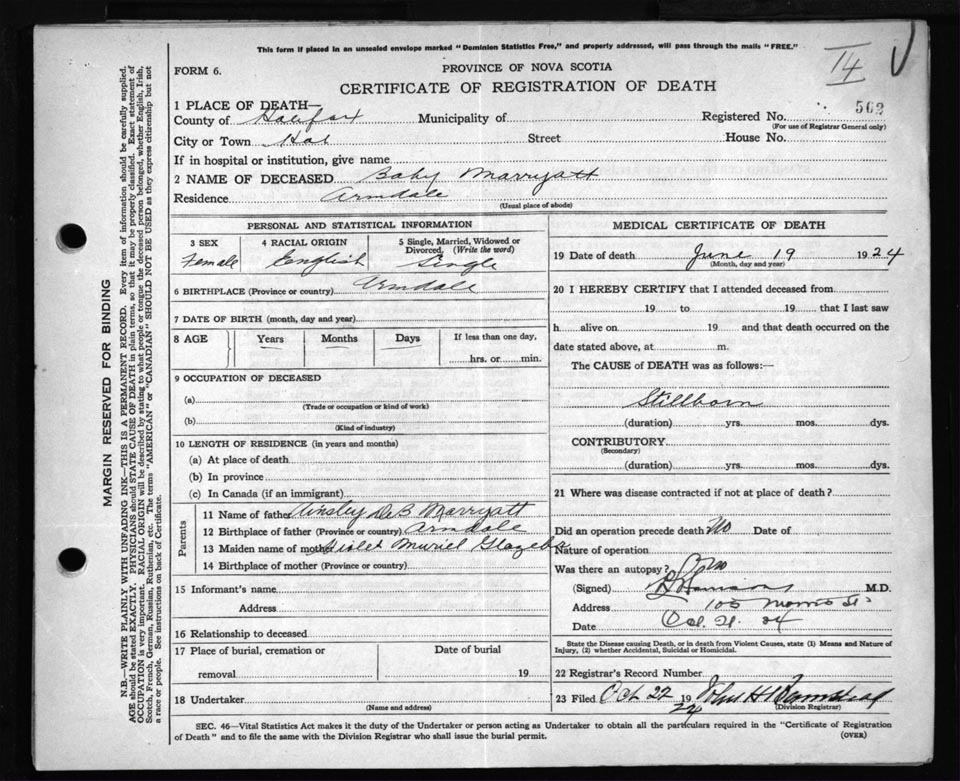 This form if placed in an unsealed envelope marked "Dominion Statistics Free," and properly addressed, will pass through the mails "FREE."
14
FORM 6.
PROVINCE OF NOVA SCOTIA
CERTIFICATE OF REGISTRATION OF DEATH
1 PLACE OF DEATH—
County of Halifax Municipality of Registered No. 502
(For use of Registrar General only)
City or Town Hal Street House No.
If in hospital or institution, give name
2 NAME OF DECEASED Baby Marryatt
Residence Armdale
(Usual place of abode)
PERSONAL AND STATISTICAL INFORMATION
3 SEX 4 RACIAL ORIGIN 5 Single, Married, Widowed or Divorced. (Write the word)
Female English Single
6 BIRTHPLACE (Province or country) Armdale
7 DATE OF BIRTH (month, day and year)
8 AGE Years Months Days If less than one day,
hrs. or min.
9 OCCUPATION OF DECEASED
(a)
(Trade or occupation or kind of work)
(b)
(Kind of industry)
10 LENGTH OF RESIDENCE (in years and months)
(a) At place of death
(b) In province
(c) In Canada (if an immigrant)
Parents
11 Name of father Ainsley DeB Marryatt
12 Birthplace of father (Province or country) Armdale
13 Maiden name of mother Violet Muriel
14 Birthplace of mother (Province or country)
15 Informant's name
Address
16 Relationship to deceased
17 Place of burial, cremation or Date of burial
removal 19
18 Undertaker
(Name and address)
MEDICAL CERTIFICATE OF DEATH
19 Date of death June 19 1924
(Month, day and year)
20 I HEREBY CERTIFY that I attended deceased from
19 to 19 that I last saw
h alive on 19 and that death occurred on the
date stated above, at m.
The CAUSE of DEATH was as follows:—
Stillborn
(duration) yrs. mos. dys.
CONTRIBUTORY
(Secondary)
(duration) yrs. mos. dys.
21 Where was disease contracted if not at place of death?
Did an operation precede death? No Date of
Nature of operation
Was there an autopsy? No
(Signed) M.D.
Address 100 Morris St
Date Oct. 21. 24
State the Disease causing Death, or in death from Violent Causes, state (1) Means and Nature of
Injury, (2) whether Accidental, Suicidal or Homicidal.
22 Registrar's Record Number
23 Filed Oct 22 19 24 John H Barnstead
(Division Registrar)
SEC. 46—Vital Statistics Act makes it the duty of the Undertaker or person acting as Undertaker to obtain all the particulars required in the "Certificate of
Registration of Death" and to file the same with the Division Registrar who shall issue the burial permit.
(OVER)
MARGIN RESERVED FOR BINDING
N.B.—WRITE PLAINLY WITH UNFADING INK—THIS IS A PERMANENT RECORD. Every item of information should be carefully supplied.
AGE should be stated EXACTLY. PHYSICIANS should STATE CAUSE OF DEATH in plain terms, so that it may be properly classified. Exact statement of
OCCUPATION is very important. RACIAL ORIGIN will be described by stating to what people or tongue the deceased person belonged, whether English, Irish,
Scotch, French, German, Russian, Ruthenian, etc. The terms "AMERICAN" or "CANADIAN" SHOULD NOT BE USED as they express citizenship but not
a race or people. See instructions on back of Certificate.